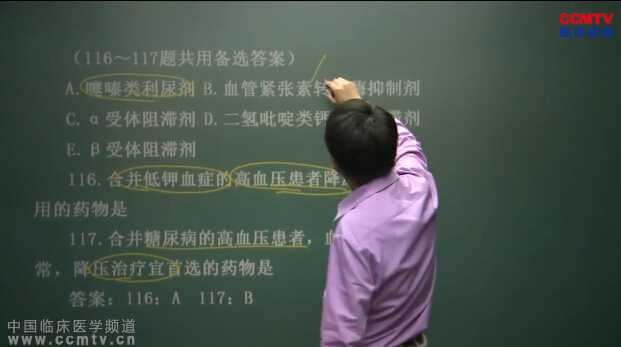 CCMTV
（116～117题共用备选答案）
A.噻嗪类利尿剂 B.血管紧张素转 酶抑制剂
C.α受体阻滞剂 D.二氢吡啶类钙 滞剂
E.β受体阻滞剂
116.合并低钾血症的高血压患者降
用的药物是
117.合并糖尿病的高血压患者，
常，降压治疗宜首选的药物是
答案：116；A 117；B
中国临床医学频道
www.ccmtv.cn